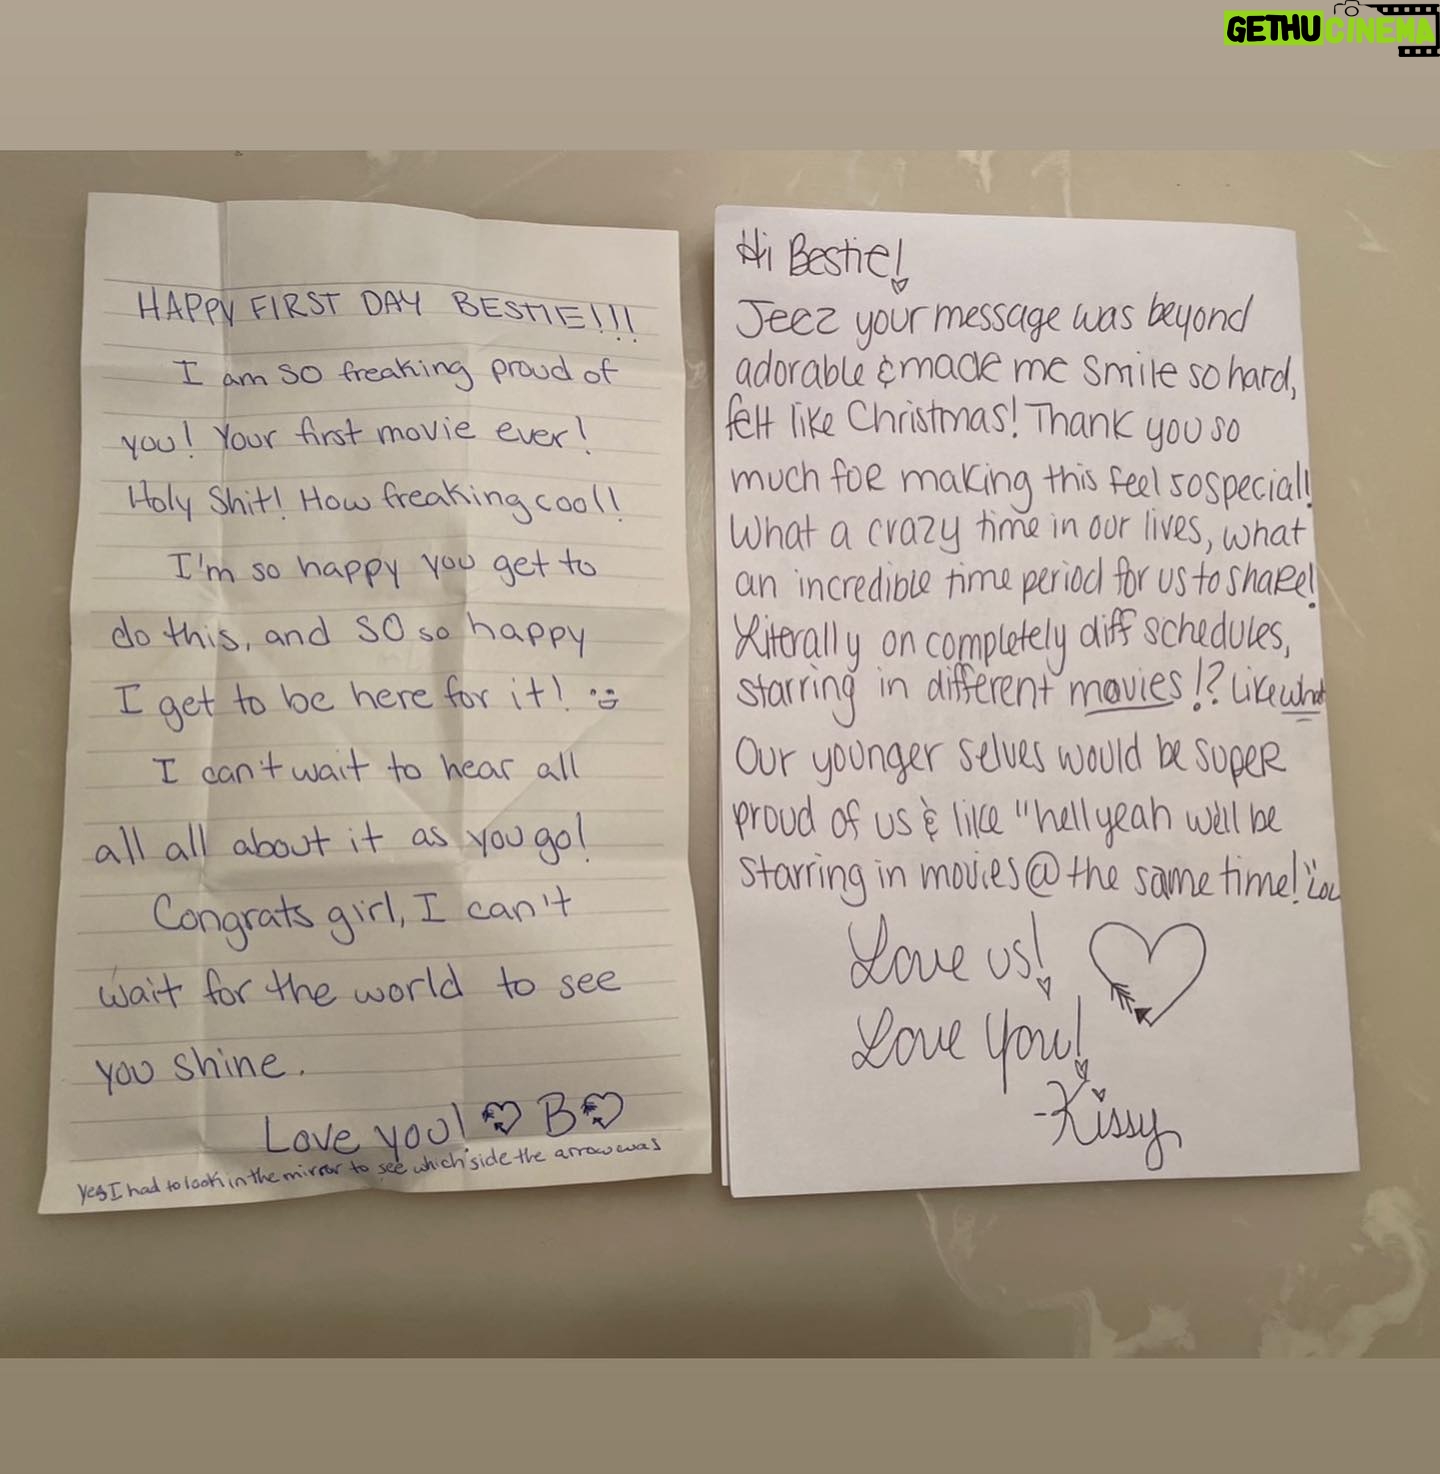 GETHUCINEMA
HAPPY FIRST DAY BESTIE!!!
I am SO freaking proud of
you! Your first movie ever!
Holy Shit! How freaking cool!
I'm so happy you get to
do this, and SO so happy
I get to be here for it! :)
I can't wait to hear all
all all about it as you go!
Congrats girl, I can't
wait for the world to see
you shine.
Love you! B
yes I had to look in the mirror to see which side the arrow was
Hi Bestie!
Jeez your message was beyond
adorable & made me smile so hard,
felt like Christmas! Thank you so
much for making this feel so special!
What a crazy time in our lives, what
an incredible time period for us to share!
Literally on completely diff schedules,
starring in different movies!? Like what
Our younger selves would be super
proud of us & like "hell yeah we'll be
starring in movies @ the same time!" LOL
Love us!
Love you!
-Kissy